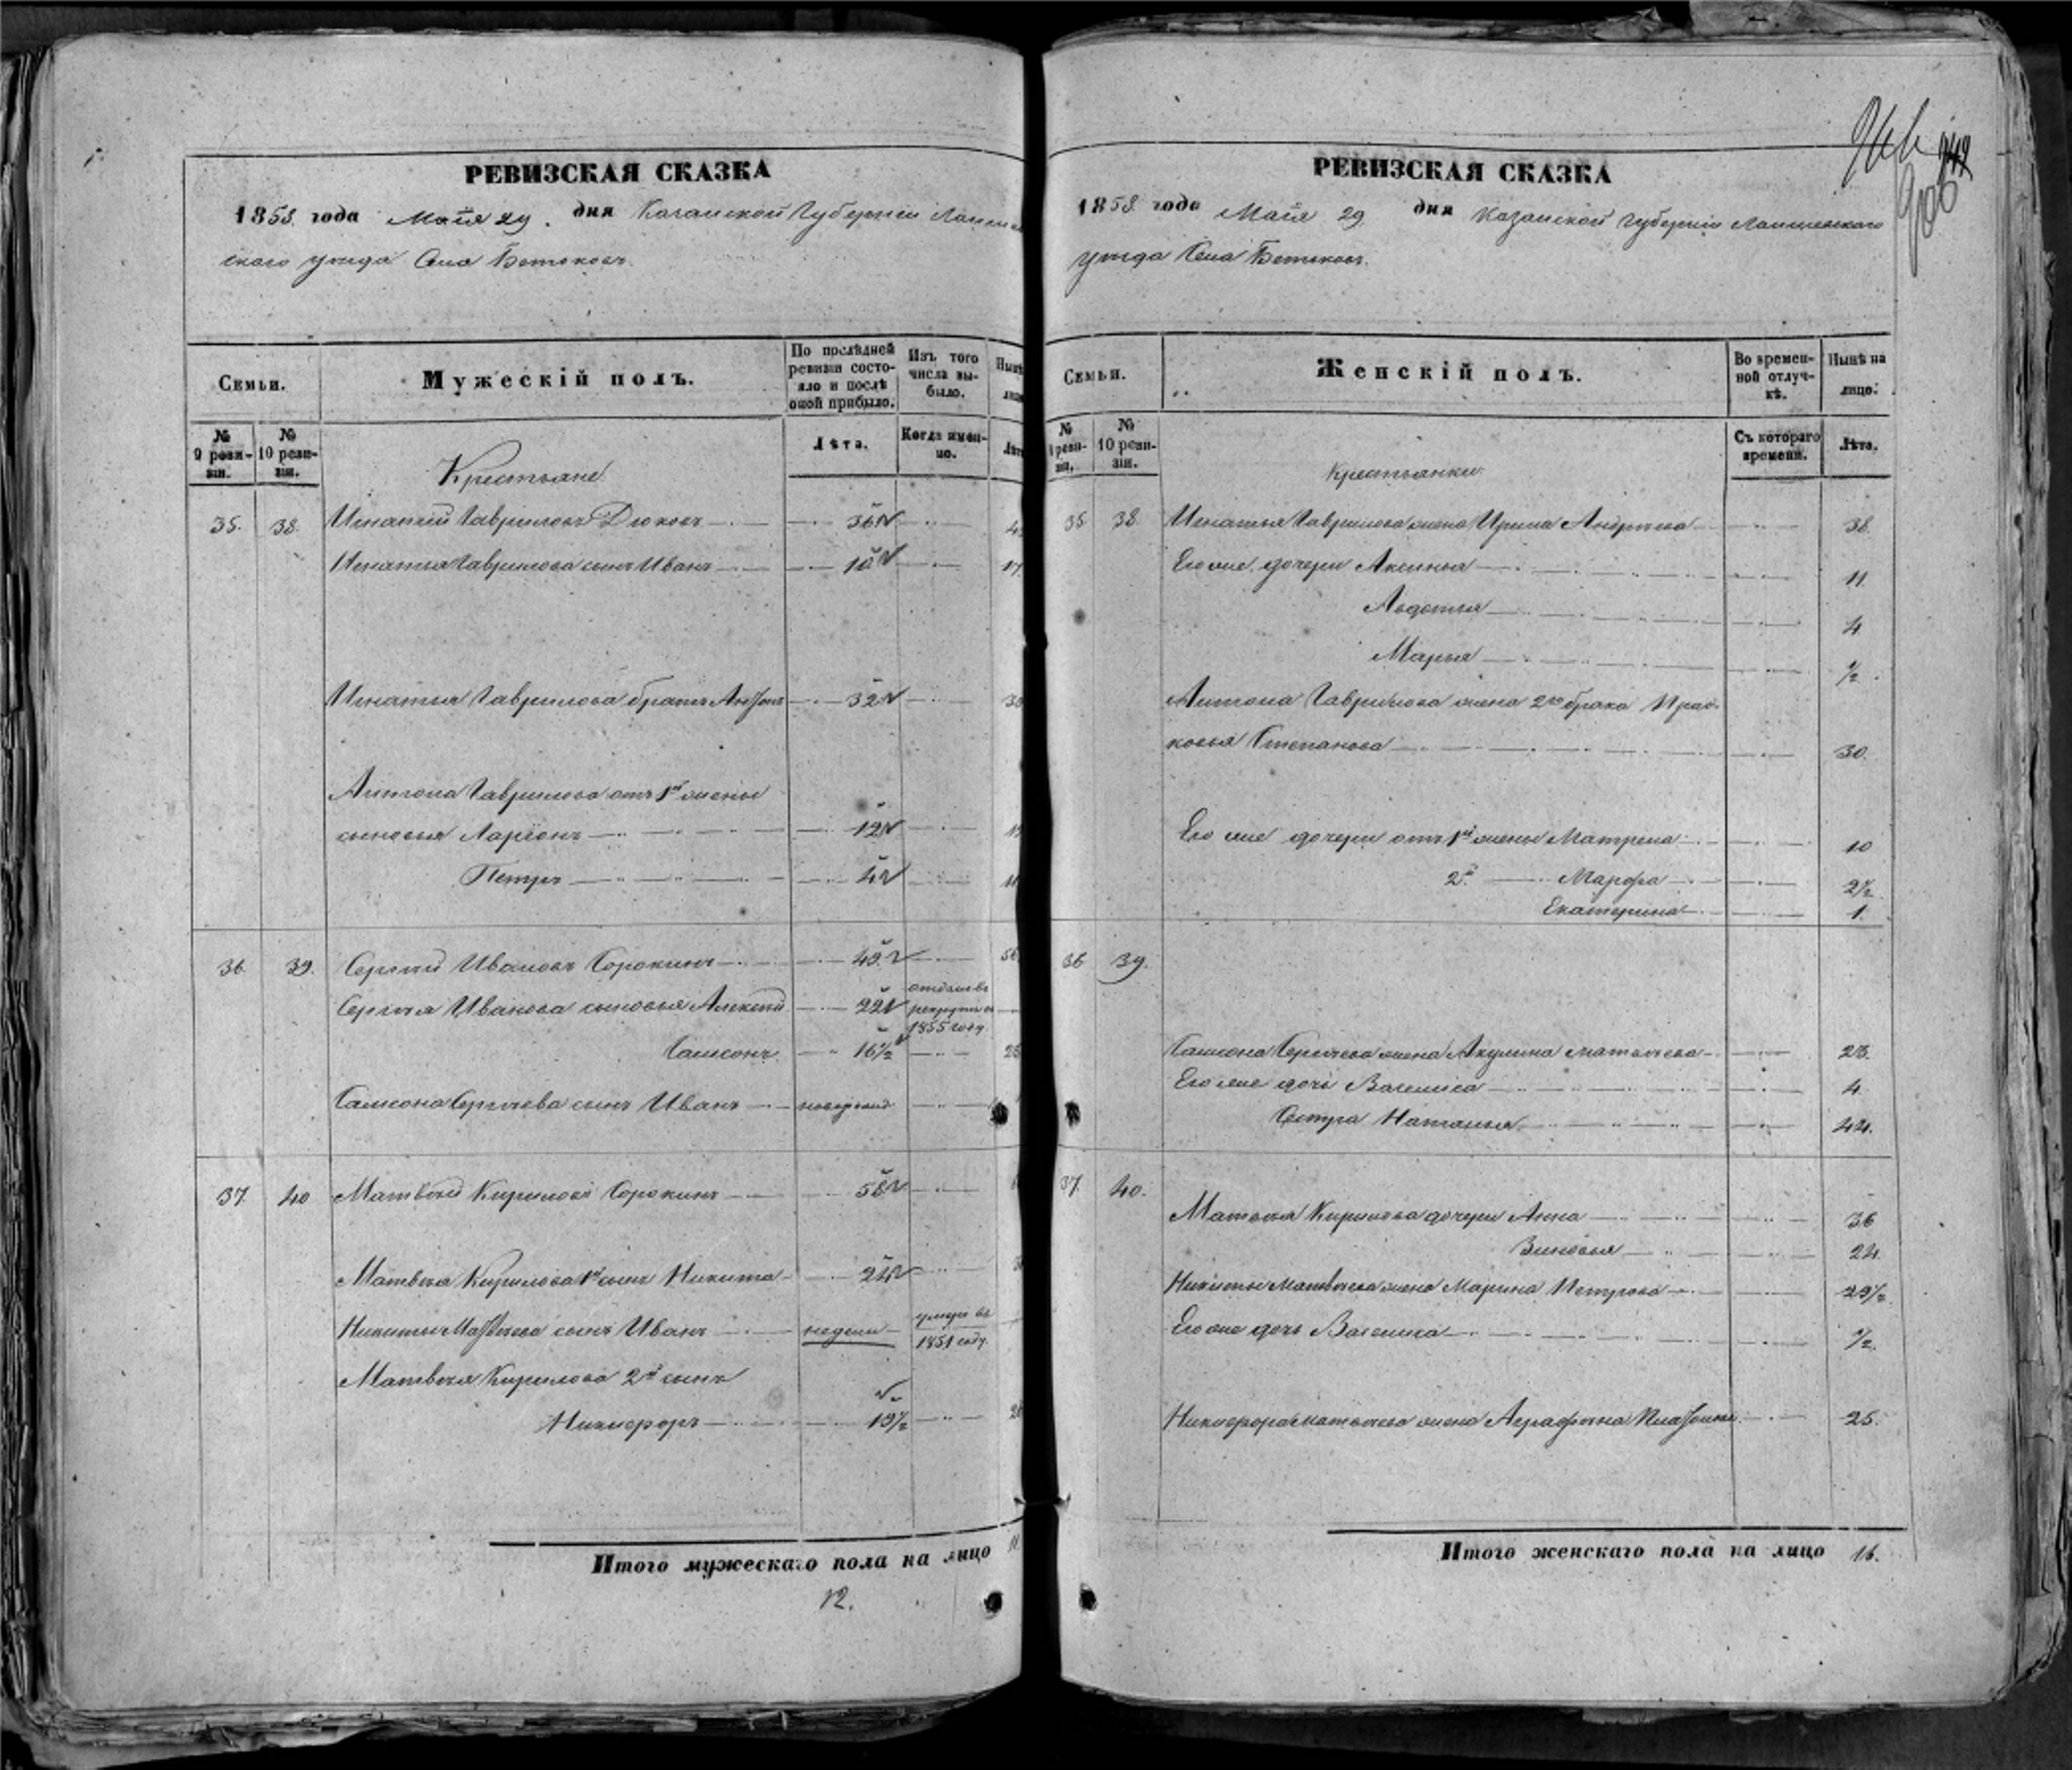 РЕВИЗСКАЯ СКАЗКА
1858 года Майя 29 дня Казанской Губернии Лаишев
скаго уезда Села Бетьковъ
Семьи.
Мужескій полъ.
По послѣдней ревизіи состояло и послѣ оной прибыло.
Изъ того числа выбыло.
№ 9 ревизіи.
№ 10 ревизіи.
Лѣта.
Когда именно.
Крестьяне
35. 38. Игнатій Гавриловъ Дюковъ 36
Игнатья Гаврилова сынъ Иванъ 10 17
Игнатья Гаврилова братъ Антонъ 32
Антона Гаврилова отъ 1й жены
сыновья Ларіонъ 12
Петръ 4
36 39. Сергей Ивановъ Сорокинъ 49
Сергея Иванова сыновья Алексей 22 отданъ в рекруты в 1855 году
Самсонъ 16½
Самсона Сергеева сынъ Иванъ новорожд
37. 40 Матвей Кириловъ Сорокинъ 58
Матвея Кирилова 1й сынъ Никита 24
Никиты Матвеева сынъ Иванъ недели умеръ въ 1851 году
Матвея Кирилова 2й сынъ
Никифоръ 19½
Итого мужескаго пола на лицо 11.
12.
РЕВИЗСКАЯ СКАЗКА
1858 года Майя 29 дня Казанской Губерніи Лаишевскаго
уезда Села Бетьковъ
Семьи.
Женскій полъ.
Во временной отлучкѣ.
Нынѣ на лицо.
№ 10 ревизіи.
Съ котораго времени.
Лѣта.
Крестьянки
35 38 Игнатья Гаврилова жена Ирина Андреева 38.
Его же дочери Аксинья 11.
Авдотья 4
Марья ½
Антона Гаврилова жена 2го брака Прас-
ковья Степанова 30.
Его же дочери отъ 1й жены Матрена 10
2й Марфа 2½
Екатерина 1.
36 39.
Самсона Сергеева жена Акулина Матвеева 23.
Его же дочь Василиса 4.
Сестра Наталья 44.
37. 40.
Матвея Кирилова дочери Анна 36
Зиновья 24.
Никиты Матвеева жена Марина Петрова 29½
Его же дочь Василиса ½.
Никифора Матвеева жена Аграфена Платонова 25.
Итого женскаго пола на лицо 16.